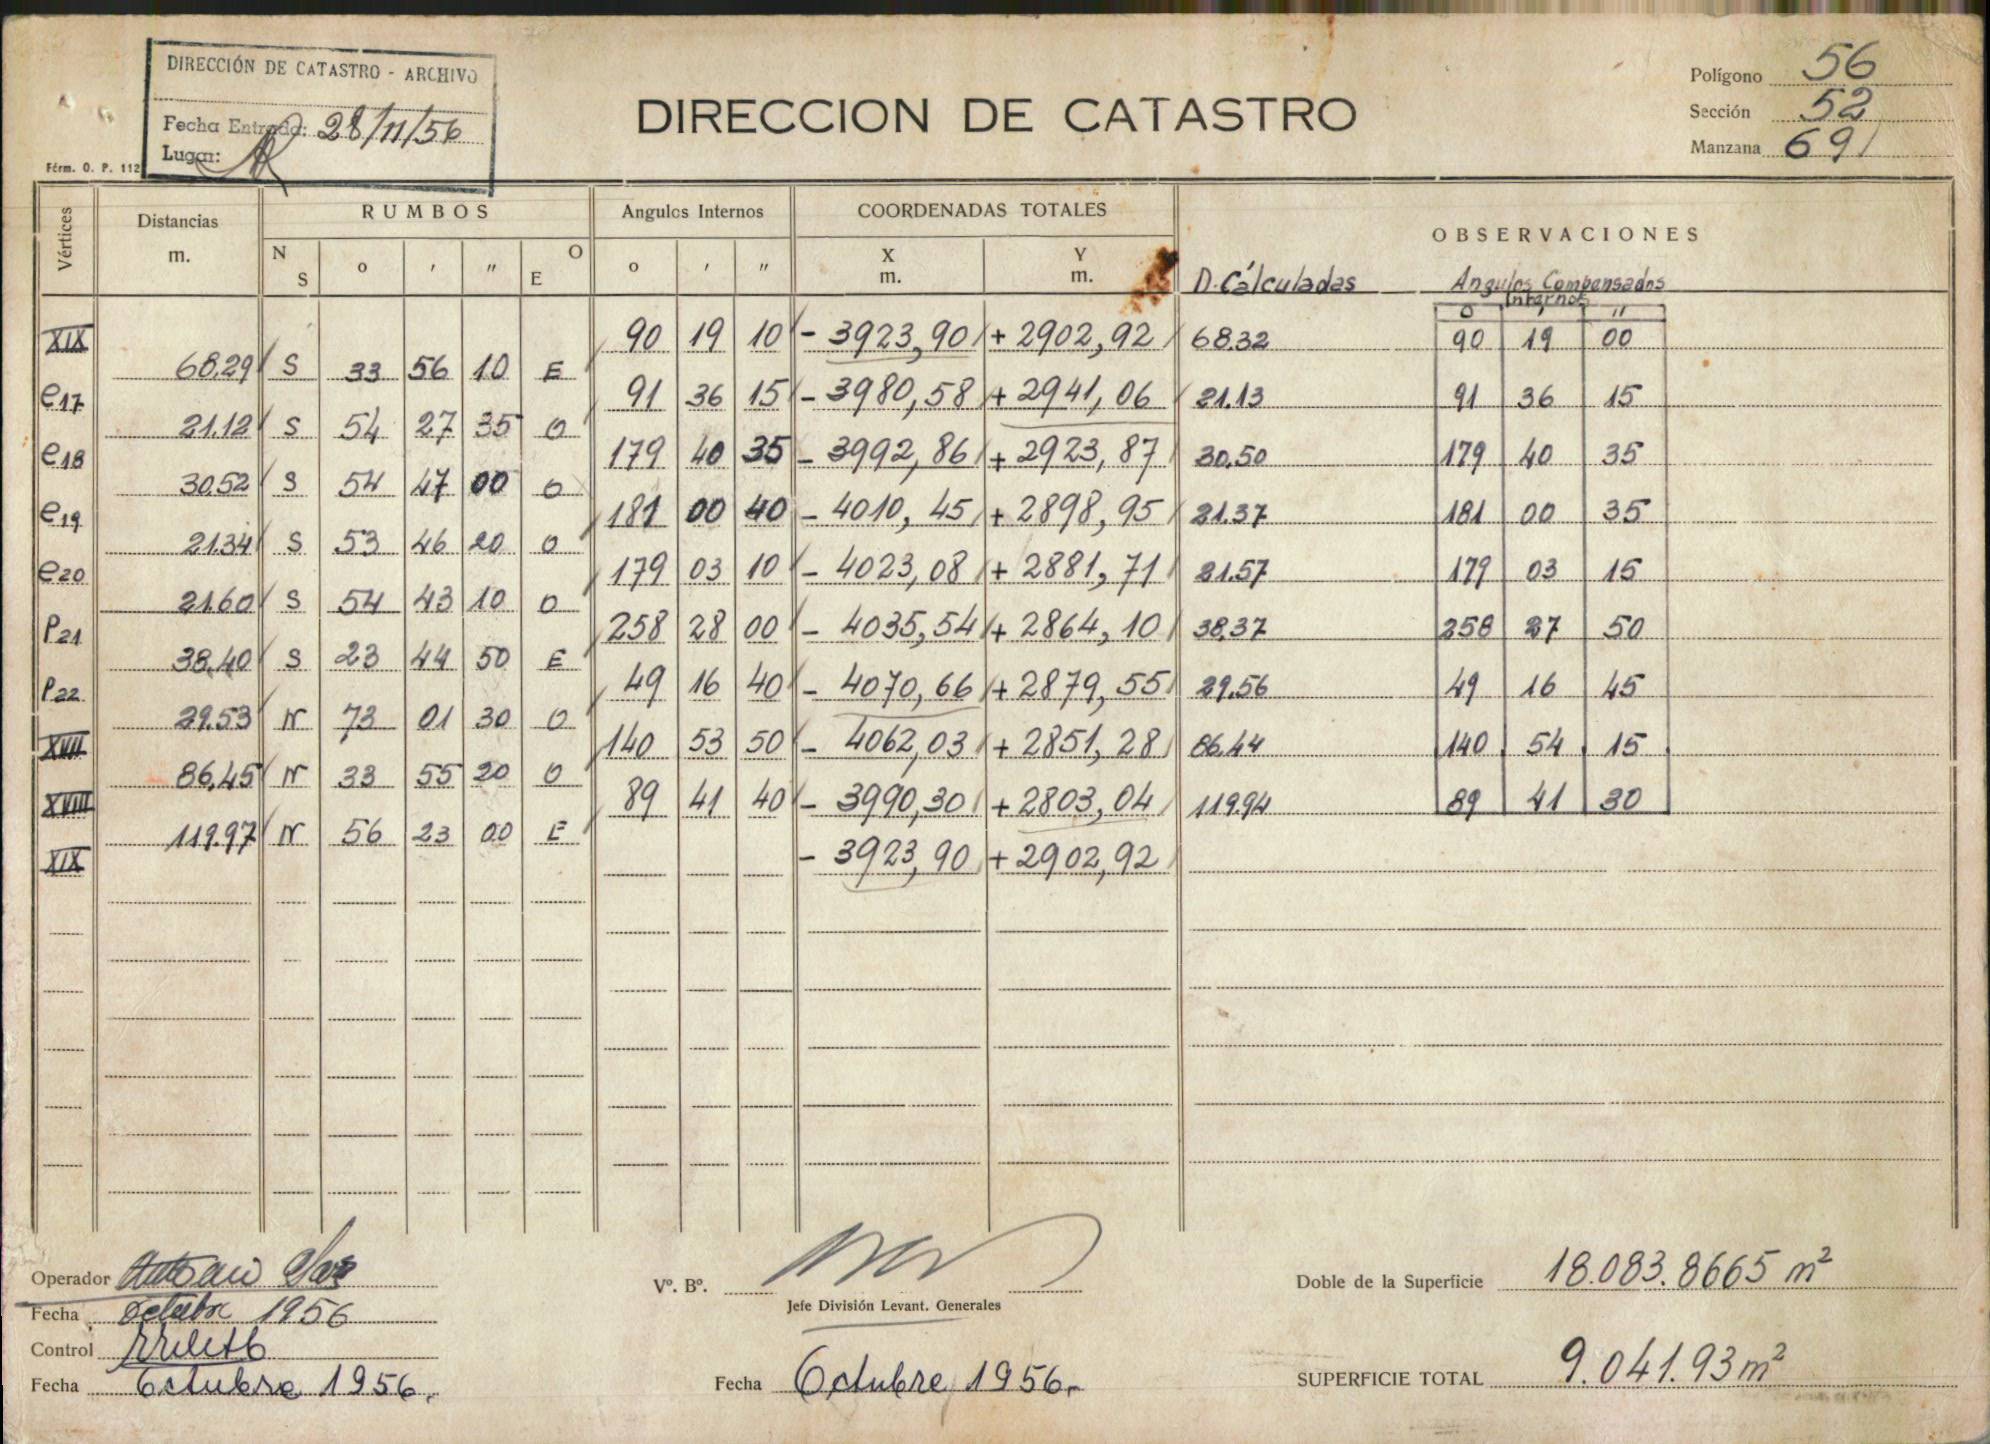 DIRECCIÓN DE CATASTRO - ARCHIVO
Fecha Entrada: 28/11/56
Lugar:
Fórm. O. P. 112
DIRECCION DE CATASTRO
Polígono 56
Sección 52
Manzana 691
Vértices Distancias m. RUMBOS Angulos Internos COORDENADAS TOTALES OBSERVACIONES
N S o ' " O E o ' " X m. Y m. D. Cálculadas Angulos Compensados Internos
o ' "
XIX 90 19 10 - 3923,90 + 2902,92 68.32 90 19 00
68.29 S 33 56 10 E
e17 91 36 15 - 3980,58 + 2941,06 21.13 91 36 15
21.12 S 54 27 35 O
e18 179 40 35 - 3992,86 + 2923,87 30.50 179 40 35
30.52 S 54 47 00 O
e19 181 00 40 - 4010,45 + 2898,95 21.37 181 00 35
21.34 S 53 46 20 O
e20 179 03 10 - 4023,08 + 2881,71 21.57 179 03 15
21.60 S 54 43 10 O
P21 258 28 00 - 4035,54 + 2864,10 38.37 258 27 50
38.40 S 23 44 50 E
P22 49 16 40 - 4070,66 + 2879,55 29.56 49 16 45
29.53 N 73 01 30 O
XVII 140 53 50 - 4062,03 + 2851,28 86.44 140 54 15
86.45 N 33 55 20 O
XVIII 89 41 40 - 3990,30 + 2803,04 119.94 89 41 30
119.97 N 56 23 00 E
XIX - 3923,90 + 2902,92
Operador
Fecha Octubre 1956
Control
Fecha Octubre 1956.
Vº. Bº.
Jefe División Levant. Generales
Fecha Octubre 1956.
Doble de la Superficie 18.083.8665 m²
SUPERFICIE TOTAL 9.041.93 m²